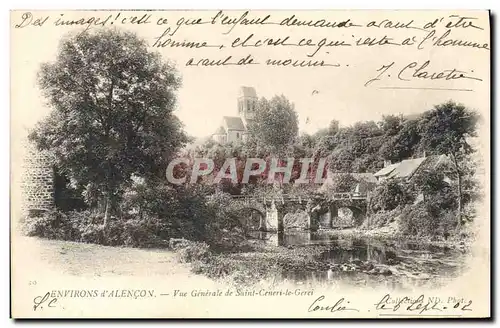 Des images! c'est ce que l'enfant demande avant d'être
homme, et c'est ce qui reste à l'homme
avant de mourir.
J. Claretie
CPARAMA.COM
20
ENVIRONS d'ALENÇON. — Vue Générale de Saint-Ceneri-le-Gerei
Collections ND Phot.
le 6 Sept. 02